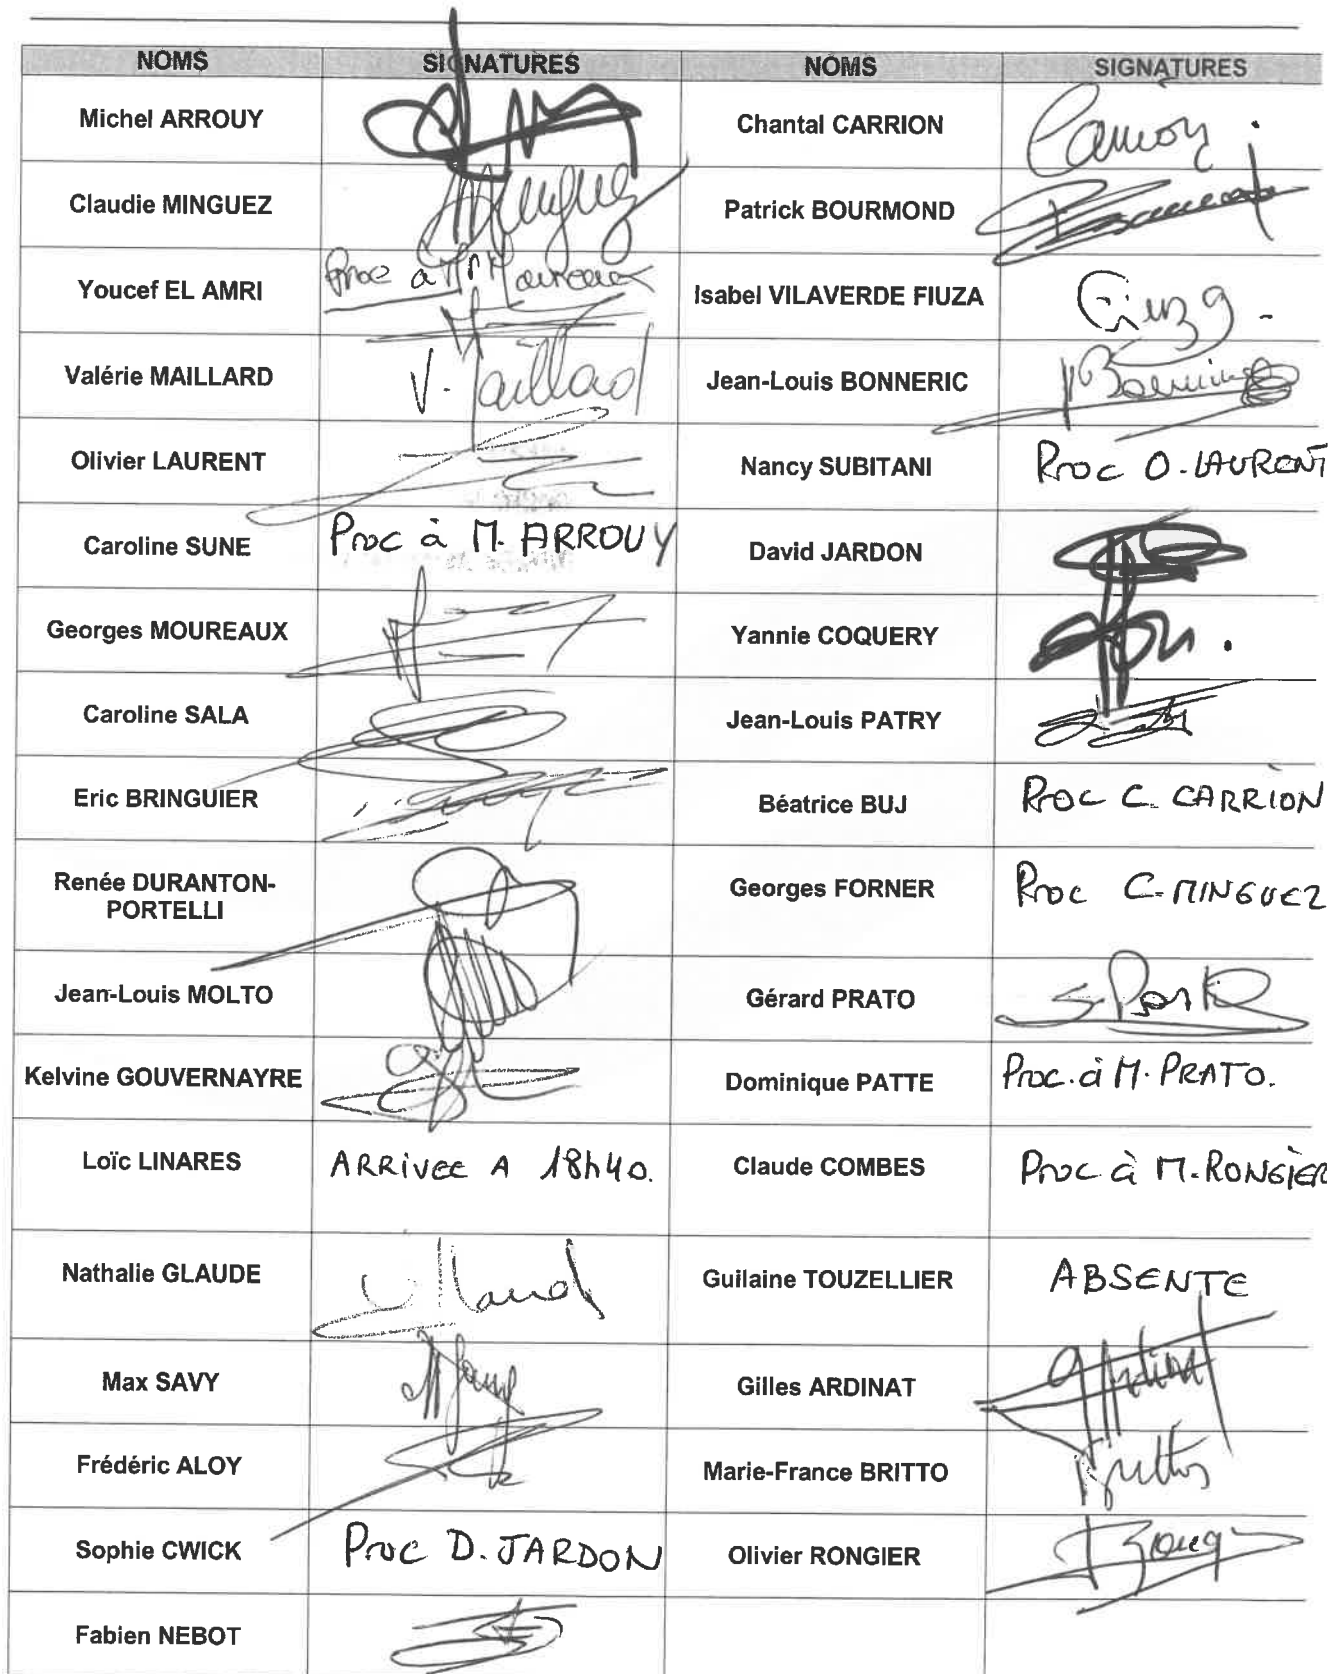 NOMS SIGNATURES NOMS SIGNATURES
Michel ARROUY Chantal CARRION Carrion
Claudie MINGUEZ Minguez Patrick BOURMOND
Youcef EL AMRI Proc à Mr Moureaux Isabel VILAVERDE FIUZA Fiuza
Valérie MAILLARD V. Maillard Jean-Louis BONNERIC
Olivier LAURENT Nancy SUBITANI Proc O. LAURENT
Caroline SUNE Proc à M. ARROUY David JARDON
Georges MOUREAUX Yannie COQUERY
Caroline SALA Jean-Louis PATRY
Eric BRINGUIER Béatrice BUJ Proc C. CARRION
Renée DURANTON-
PORTELLI Georges FORNER Proc C. MINGUEZ
Jean-Louis MOLTO Gérard PRATO
Kelvine GOUVERNAYRE Dominique PATTE Proc. à M. PRATO.
Loïc LINARES ARRIVEE A 18h40. Claude COMBES Proc à M. RONGIER
Nathalie GLAUDE Guilaine TOUZELLIER ABSENTE
Max SAVY Gilles ARDINAT Ardinat
Frédéric ALOY Marie-France BRITTO
Sophie CWICK Proc D. JARDON Olivier RONGIER
Fabien NEBOT